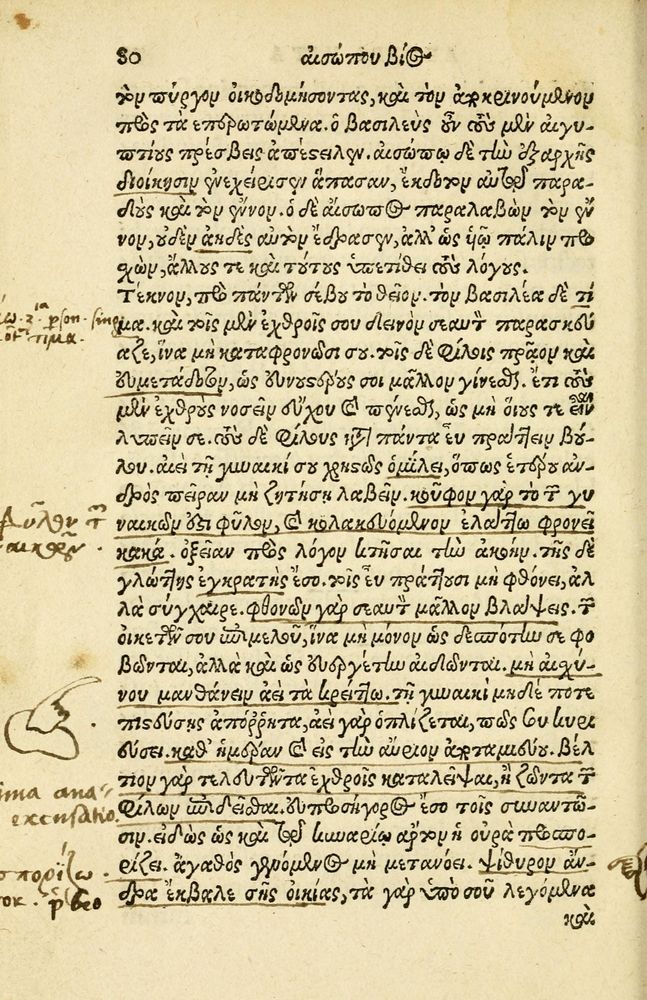 80 αἰσώπου βίος
τὸν πύργον οἰκοδομήσοντας, καὶ τὸν ἀποκρινούμενον
πρὸς τὰ ἐπερωτώμενα. ὁ βασιλεὺς οὖν τοὺς μὲν αἰγυ-
πτίους πρέσβεις ἀπέστειλεν. αἰσώπῳ δὲ τὴν ἐξαρχῆς
διοίκησιν ἐνεχείρισεν ἅπασαν, ἔκδοτον αὐτῷ παρα-
δοὺς καὶ τὸν ἔννον. ὁ δὲ αἴσωπος παραλαβὼν τὸν ἔν
νον, οὐδὲν ἀηδὲς αὐτὸν ἔδρασεν, ἀλλ' ὡς ἡῷ πάλιν προ
σχὼν, ἄλλοις τε καὶ τούτοις ὑπετίθει τοὺς λόγους.
Τέκνον, πρὸ πάντων σέβου τὸ θεῖον. τὸν βασιλέα δὲ τί
μα. καὶ τοῖς μὲν ἐχθροῖς σου δεινὸν σεαυτὸν παρασκεύ
αζε, ἵνα μὴ καταφρονῶσί σου. τοῖς δὲ φίλοις πρᾷον καὶ
εὐμετάδοτον, ὡς εὐνουστέρους σοι μᾶλλον γίνεσθαι. ἔτι τοὺς
μὲν ἐχθροὺς νοσεῖν εὔχου καὶ πένεσθαι, ὡς μὴ οἵους τε εἶναι
λυπεῖν σε. τοὺς δὲ φίλους κατὰ πάντα εὖ πράττειν βού
λου. ἀεὶ τῇ γυναικί σου χρηστῶς ὁμίλει, ὅπως ἑτέρου ἀν-
δρὸς πεῖραν μὴ ζητήσῃ λαβεῖν. κοῦφον γὰρ τὸ τῶν γυ
ναικῶν ἐστι φῦλον, καὶ κολακευόμενον ἐλάττω φρονεῖ
κακά. ὀξεῖαν πρὸς λόγον κτῆσαι τὴν ἀκοήν. τῆς δὲ
γλώττης ἐγκρατὴς ἔσο. τοῖς εὖ πράττουσι μὴ φθόνει, ἀλ
λὰ σύγχαιρε. φθονῶν γὰρ σεαυτὸν μᾶλλον βλάψεις. τῶν
οἰκετῶν σου ἐπιμελοῦ, ἵνα μὴ μόνον ὡς δεσπότην σε φο
βῶνται, ἀλλὰ καὶ ὡς εὐεργέτην αἰδῶνται. μὴ αἰσχύ-
νου μανθάνειν ἀεὶ τὰ κρείττω. τῇ γυναικὶ μηδέ ποτε
πιστεύσῃς ἀπόρρητα, ἀεὶ γὰρ ὁπλίζεται, πῶς σου κυρι
εύσει. καθ' ἡμέραν καὶ εἰς τὴν αὔριον ἀποταμιεύου. βέλ
τιον γὰρ τελευτῶντα ἐχθροῖς καταλεῖψαι, ἢ ζῶντα τῶν
φίλων ἐπιδεῖσθαι. εὐπροσήγορος ἔσο τοῖς συναντῶ-
σιν. εἰδὼς ὡς καὶ τῷ κυναρίῳ ἄρτον ἡ οὐρὰ προσπο-
ρίζει. ἀγαθὸς γενόμενος μὴ μετανόει. ψίθυρον ἄν-
δρα ἔκβαλε σῆς οἰκίας, τὰ γὰρ ὑπὸ σοῦ λεγόμενα
καὶ
τίμα.
excusatio.